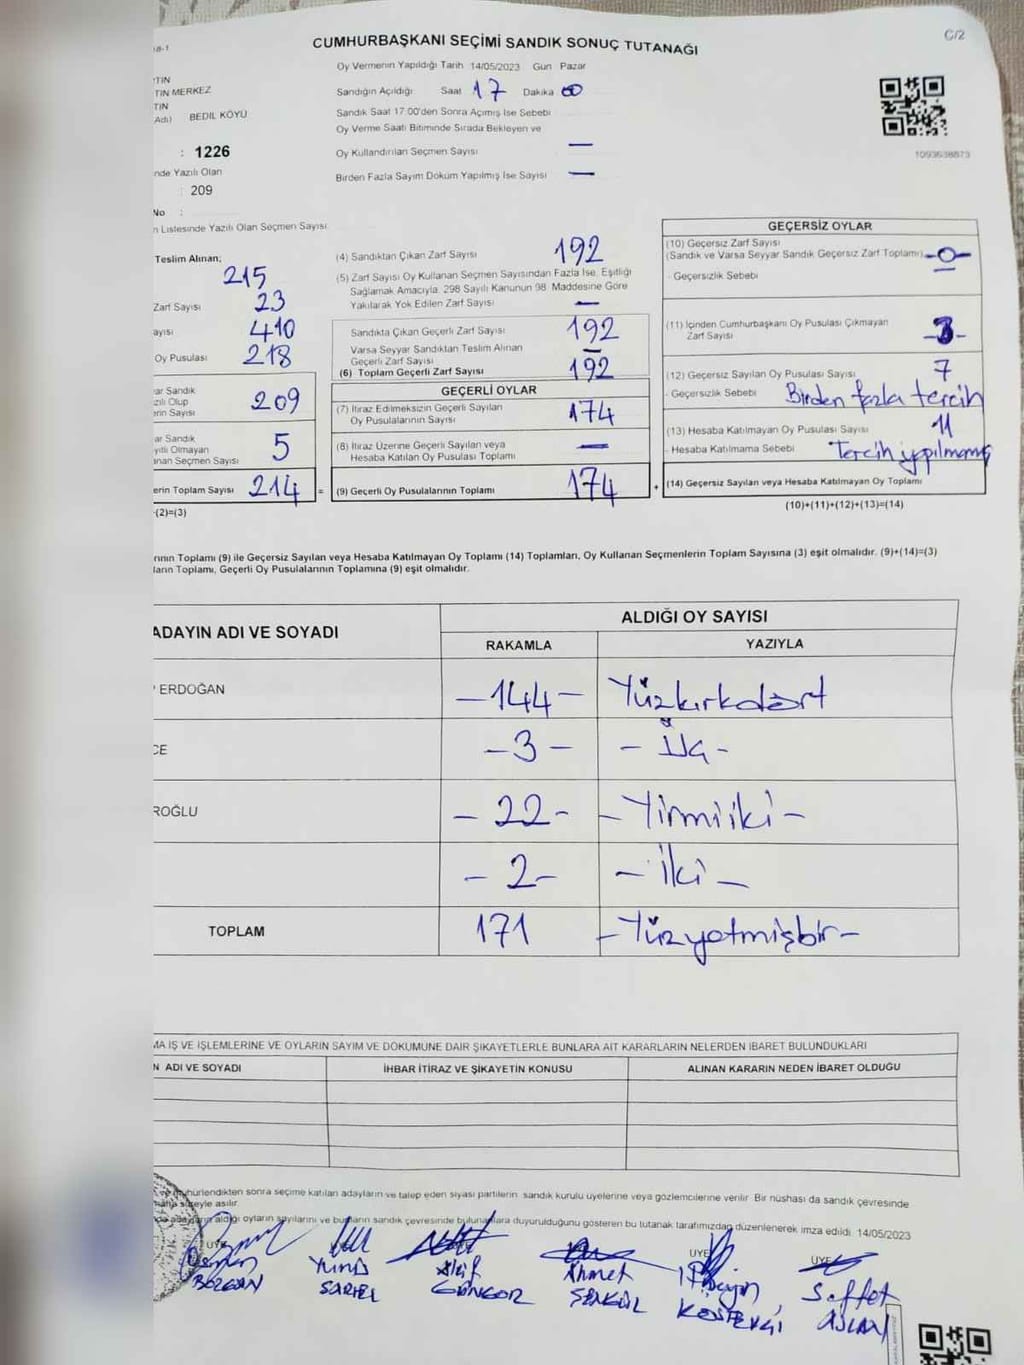 18-1
C/2
CUMHURBAŞKANI SEÇİMİ SANDIK SONUÇ TUTANAĞI
Oy Vermenin Yapıldığı Tarih 14/05/2023 Gün Pazar
Sandığın Açıldığı Saat 17 Dakika 00
Sandık Saat 17:00'den Sonra Açmış İse Sebebi
Oy Verme Saati Bitiminde Sırada Bekleyen ve
Oy Kullandırılan Seçmen Sayısı —
Birden Fazla Sayım Döküm Yapılmış İse Sayısı —
TİN
TİN MERKEZ
TİN
Adı) BEDİL KÖYÜ
: 1226
nde Yazılı Olan
: 209
No :
n Listesinde Yazılı Olan Seçmen Sayısı
1093638873
Teslim Alınan;
215
Zarf Sayısı 23
ayısı 410
Oy Pusulası 218
ar Sandık
zılı Olup
erin Sayısı 209
ar Sandık
yıtlı Olmayan
anan Seçmen Sayısı 5
erin Toplam Sayısı 214 =
-(2)=(3)
(4) Sandıktan Çıkan Zarf Sayısı 192
(5) Zarf Sayısı Oy Kullanan Seçmen Sayısından Fazla İse, Eşitliği
Sağlamak Amacıyla, 298 Sayılı Kanunun 98. Maddesine Göre
Yakılarak Yok Edilen Zarf Sayısı —
Sandıkta Çıkan Geçerli Zarf Sayısı 192
Varsa Seyyar Sandıktan Teslim Alınan
Geçerli Zarf Sayısı —
(6) Toplam Geçerli Zarf Sayısı 192
GEÇERLİ OYLAR
(7) İtiraz Edilmeksizin Geçerli Sayılan
Oy Pusulalarının Sayısı 174
(8) İtiraz Üzerine Geçerli Sayılan veya
Hesaba Katılan Oy Pusulası Toplamı —
(9) Geçerli Oy Pusulalarının Toplamı 174 +
GEÇERSİZ OYLAR
(10) Geçersiz Zarf Sayısı
(Sandık ve Varsa Seyyar Sandık Geçersiz Zarf Toplamı) -0-
- Geçersizlik Sebebi
(11) İçinden Cumhurbaşkanı Oy Pusulası Çıkmayan
Zarf Sayısı -3-
(12) Geçersiz Sayılan Oy Pusulası Sayısı 7
- Geçersizlik Sebebi Birden fazla tercih
(13) Hesaba Katılmayan Oy Pusulası Sayısı 11
- Hesaba Katılmama Sebebi Tercih yapılmamış
(14) Geçersiz Sayılan veya Hesaba Katılmayan Oy Toplamı
(10)+(11)+(12)+(13)=(14)
rının Toplamı (9) ile Geçersiz Sayılan veya Hesaba Katılmayan Oy Toplamı (14) Toplamları, Oy Kullanan Seçmenlerin Toplam Sayısına (3) eşit olmalıdır. (9)+(14)=(3)
ların Toplamı, Geçerli Oy Pusulalarının Toplamına (9) eşit olmalıdır.
ADAYIN ADI VE SOYADI
ALDIĞI OY SAYISI
RAKAMLA YAZIYLA
ERDOĞAN -144- Yüzkırkdört
CE -3- - Üç -
ROĞLU - 22 - - Yirmiiki -
- 2 - - İki -
TOPLAM 171 - Yüzyetmişbir -
MA İŞ VE İŞLEMLERİNE VE OYLARIN SAYIM VE DÖKÜMÜNE DAİR ŞİKAYETLERLE BUNLARA AİT KARARLARIN NELERDEN İBARET BULUNDUKLARI
N ADI VE SOYADI İHBAR İTİRAZ VE ŞİKAYETİN KONUSU ALINAN KARARIN NEDEN İBARET OLDUĞU
mühürlendikten sonra seçime katılan adayların ve talep eden siyasi partilerin sandık kurulu üyelerine veya gözlemcilerine verilir. Bir nüshası da sandık çevresinde
süreyle asılır.
aldığı oyların sayılarını ve bunların sandık çevresinde bulunanlara duyurulduğunu gösteren bu tutanak tarafımızdan düzenlenerek imza edildi. 14/05/2023
ÜYE ÜYE ÜYE
Akif Ahmet Saffet
BOZGAN GÜNGÖR ŞENGÜL ASLAN